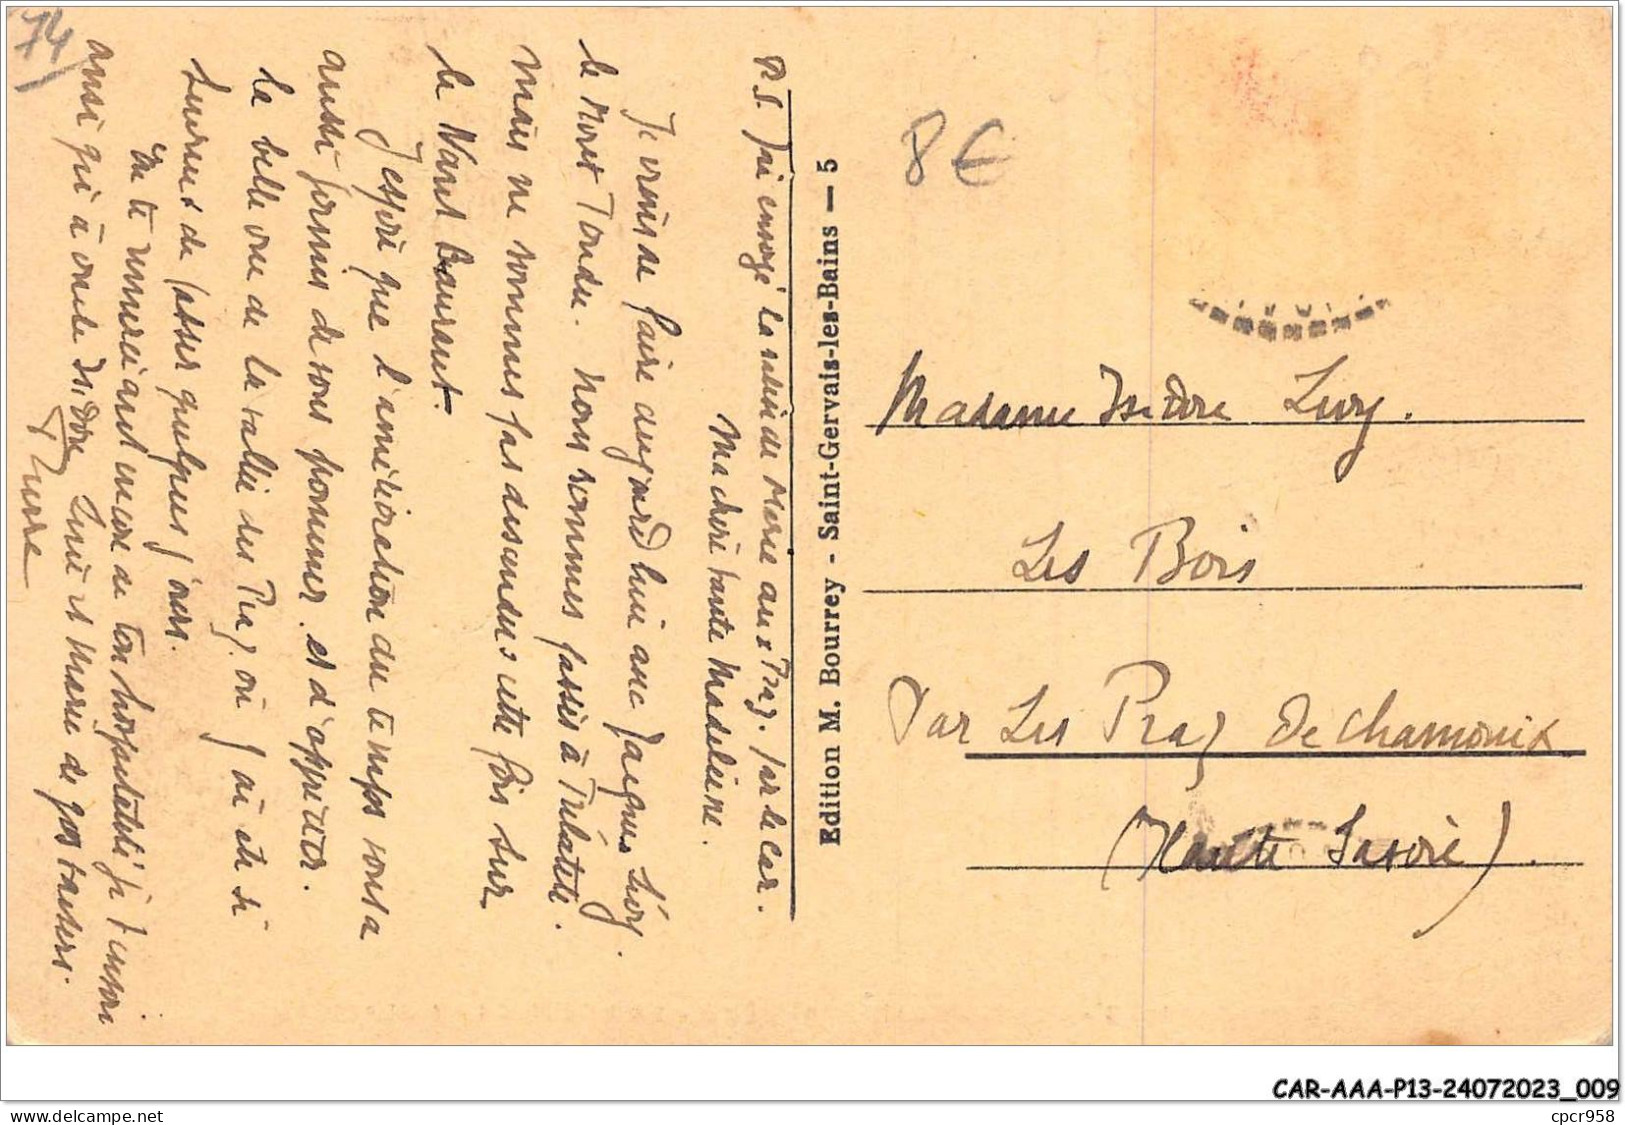 74
P.S. J'ai envoyé la valise de Merse aux Praz. par le car.
Ma chère tante Madeleine.
Je viens de faire aujourd'hui avec Jacques Lévy.
le Mont Tondu. Nous sommes passés à Trélatête.
mais ne sommes pas descendus cette fois sur
le Nant Bourrant.
J'espère que l'amélioration du temps vous a
aussi permis de vous promener et d'apprécier.
la belle vue de la vallée des Praz où j'ai été si
heureux de passer quelques jours.
En te remerciant encore de ton hospitalité je t'envoie
ainsi qu'à oncle Isidore, et Marie de gros baisers.
Pierre
Edition M. Bourrey - Saint-Gervais-les-Bains — 5
8€
Madame Isidore Levy.
Les Bois
Par Les Praz de Chamonix
(Haute Savoie).
CAR-AAA-P13-24072023_009
www.delcampe.net
cpcr958